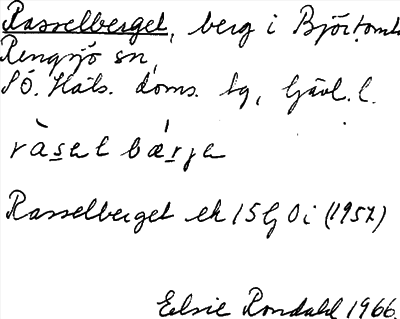 Rasselberget, berg i Björtomta
Rengsjö sn,
Sö. Häls. doms. sg, Gävl. l.
ràsel bærje
Rasselberget ek 15G 0i (1957)
Elsie Rondahl 1966.